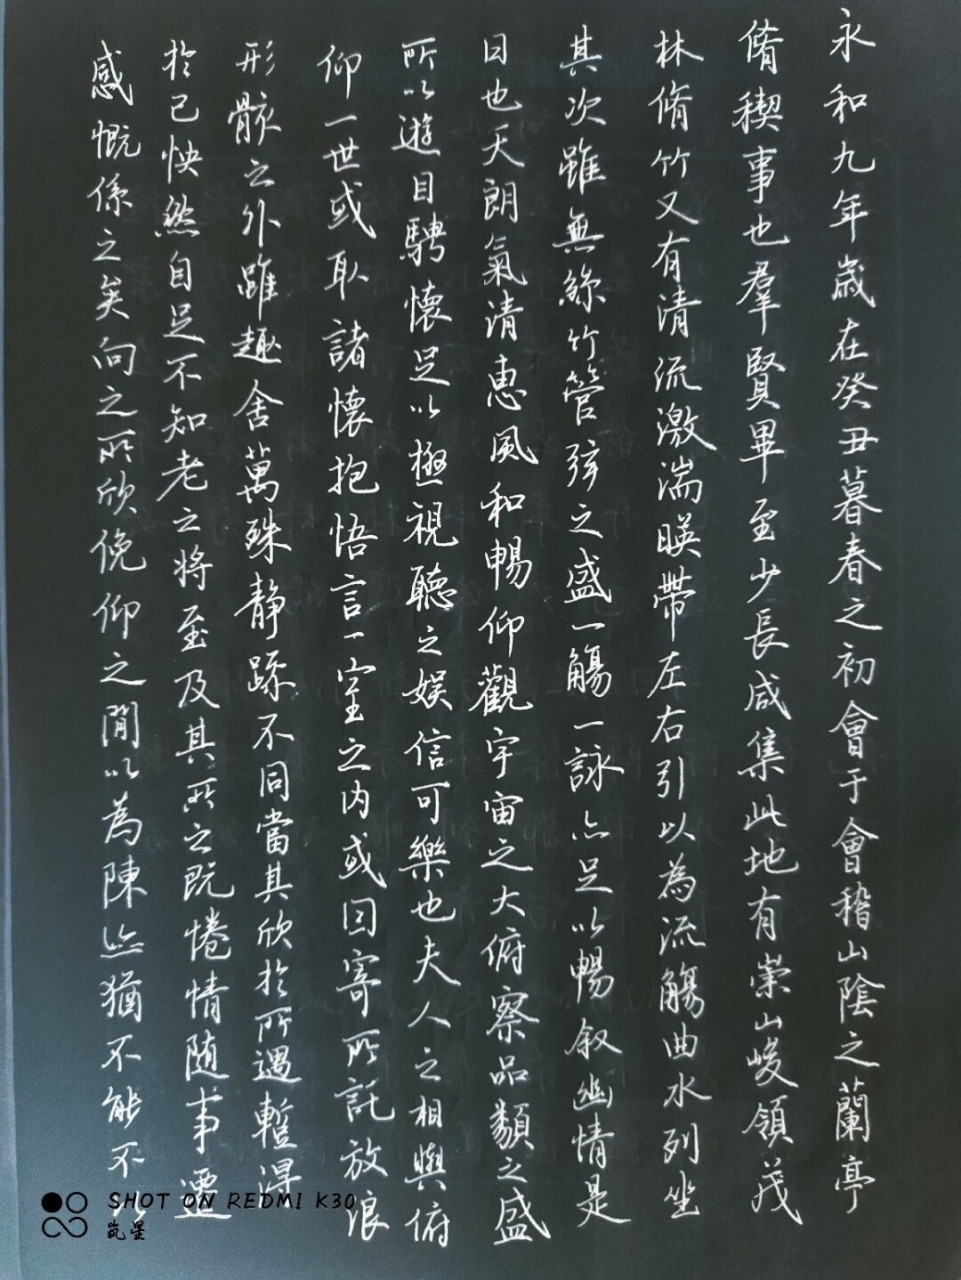 永和九年歲在癸丑暮春之初會于會稽山陰之蘭亭
脩稧事也羣賢畢至少長咸集此地有崇山峻領茂
林脩竹又有清流激湍暎帶左右引以為流觴曲水列坐
其次雖無絲竹管弦之盛一觴一詠亦足以暢叙幽情是
日也天朗氣清惠風和暢仰觀宇宙之大俯察品類之盛
所以遊目騁懷足以極視聽之娛信可樂也夫人之相與俯
仰一世或取諸懷抱悟言一室之内或因寄所託放浪
形骸之外雖趣舍萬殊静躁不同當其欣於所遇暫得
於己怏然自足不知老之将至及其所之既惓情随事遷
感慨係之矣向之所欣俛仰之間以為陳迹猶不能不
SHOT ON REDMI K30
岚星